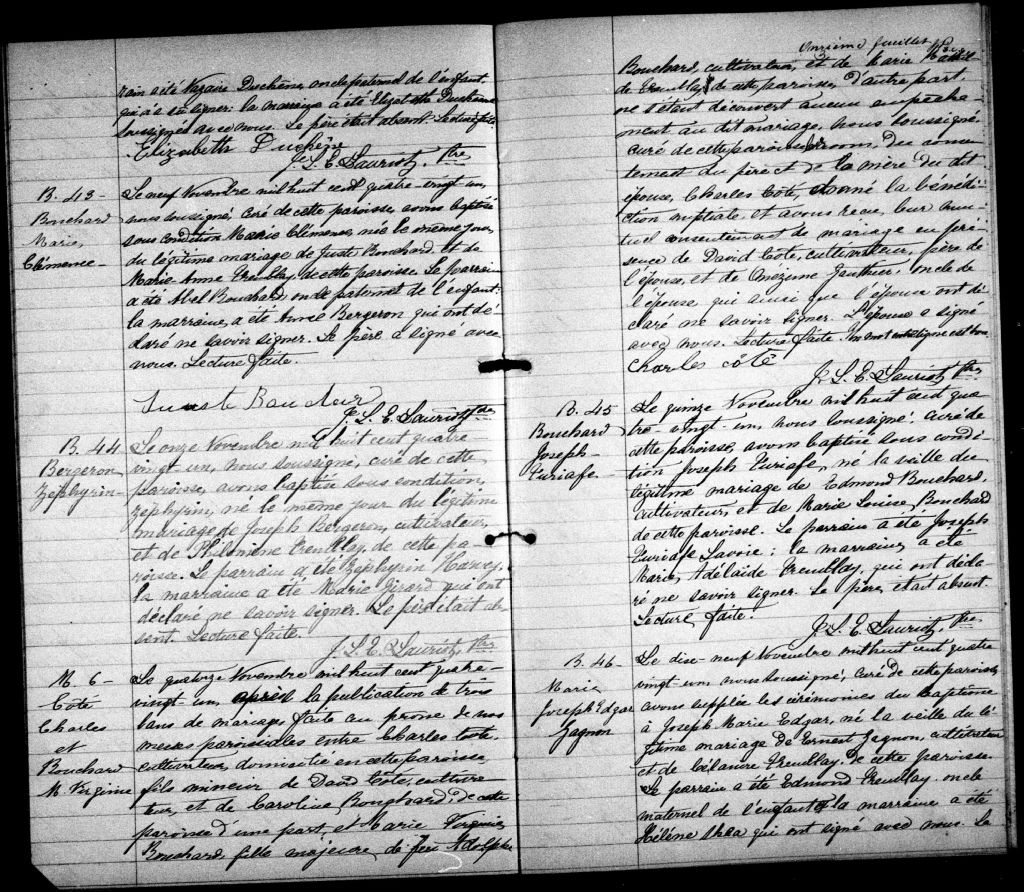 rain a été Nazaire Duchêne, oncle paternel de l'enfant
qui a su signer: la marraine a été Elizabeth Duchêne
soussignée avec nous. Le père était absent. Lecture faite.
Elizabeth Duchêne
J. L. E. Lauriot, Ptre
B. 43-
Bouchard
Marie,
Clémence-
Le neuf Novembre mil huit cent quatre-vingt un,
nous soussigné, curé de cette paroisse, avons baptisé
sous condition Marie Clémence, née le même jour,
du légitime mariage de Juste Bouchard, et de
Marie Anne Tremblay, de cette paroisse. Le parrain
a été Abel Bouchard, oncle paternel de l'enfant:
la marraine, a été Bergeron qui ont dé-
claré ne savoir signer. Le père a signé avec
nous. Lecture faite.
J. L. E. Lauriot, Ptre
B. 44
Bergeron
Zephyrin-
Le onze Novembre mil huit cent quatre-
vingt un, nous soussigné, curé de cette
paroisse, avons baptisé sous condition,
Zephyrin, né le même jour du légitime
mariage de Joseph Bergeron, cultivateur,
et de Philomène Tremblay, de cette pa-
roisse. Le parrain a été Zephyrin Harvey,
la marraine a été Marie Girard qui ont
déclaré ne savoir signer. Le père était ab-
sent. Lecture faite.
J. L. E. Lauriot, Ptre
M 6-
Côté
Charles
et
Bouchard
M Virginie
Le quatorze Novembre mil huit cent quatre-
vingt un, après la publication de trois
bans de mariage, faite au prone de nos
messes paroissiales entre Charles Côté,
cultivateur, domicilié en cette paroisse,
fils mineur de David Côté, cultiva-
teur, et de Caroline Bouchard, de cette
paroisse d'une part, et Marie Virginie
Bouchard, fille majeure de feu Adolphe
Onzième feuillet
Bouchard, cultivateur, et de Marie
de Tremblay de cette paroisse, d'autre part,
ne s'étant découvert aucun empêche-
ment au dit mariage, nous soussigné,
curé de cette paroisse, du consen-
tement du père et de la mère du dit
époux, Charles Côté, donné la bénédic-
tion nuptiale, et avons reçu, leur mu-
tuel consentement de mariage en pré-
sence de David Côté, cultivateur, père de
l'époux, et de Onezime Gauthier, oncle de
l'épouse, qui ainsi que l'épouse ont dé-
claré ne savoir signer. L'époux a signé
avec nous. Lecture faite.
Charles côté
J. L. E. Lauriot, Ptre
B. 45
Bouchard
Joseph-
Turiafe-
Le quinze Novembre mil huit cent qua-
tre-vingt-un, nous soussigné, curé de
cette paroisse, avons baptisé sous condi-
tion Joseph Turiafe, né la veille du
légitime mariage de Edmond Bouchard,
cultivateur, et de Marie Louise Bouchard
de cette paroisse. Le parrain a été Joseph
Turiafe Savoie: la marraine, a été
Marie Adélaide Tremblay, qui ont décla-
ré ne savoir signer. Le père était absent.
Lecture faite.
J. L. E. Lauriot, Ptre
B. 46-
Marie
Joseph Edgar
Gagnon
Le dix-neuf Novembre mil huit cent quatre
vingt-un, nous soussigné, curé de cette paroisse,
avons supplée les cérémonies du baptême
à Joseph Marie Edgar, né la veille du lé-
gitime mariage de Ernest Gagnon, cultivateur
et de Célanire Tremblay, de cette paroisse.
Le parrain a été Edmond Tremblay, oncle
maternel de l'enfant la marraine a été
Hélène Shea qui ont signé avec nous. Le